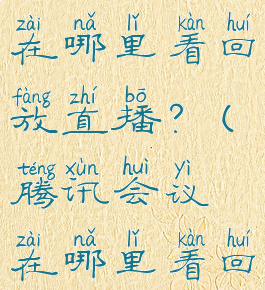 zài nǎ lǐ kàn huí
在哪里看回
fàng zhí bō
放直播?(
téng xùn huì yì
腾讯会议
zài nǎ lǐ kàn huí
在哪里看回